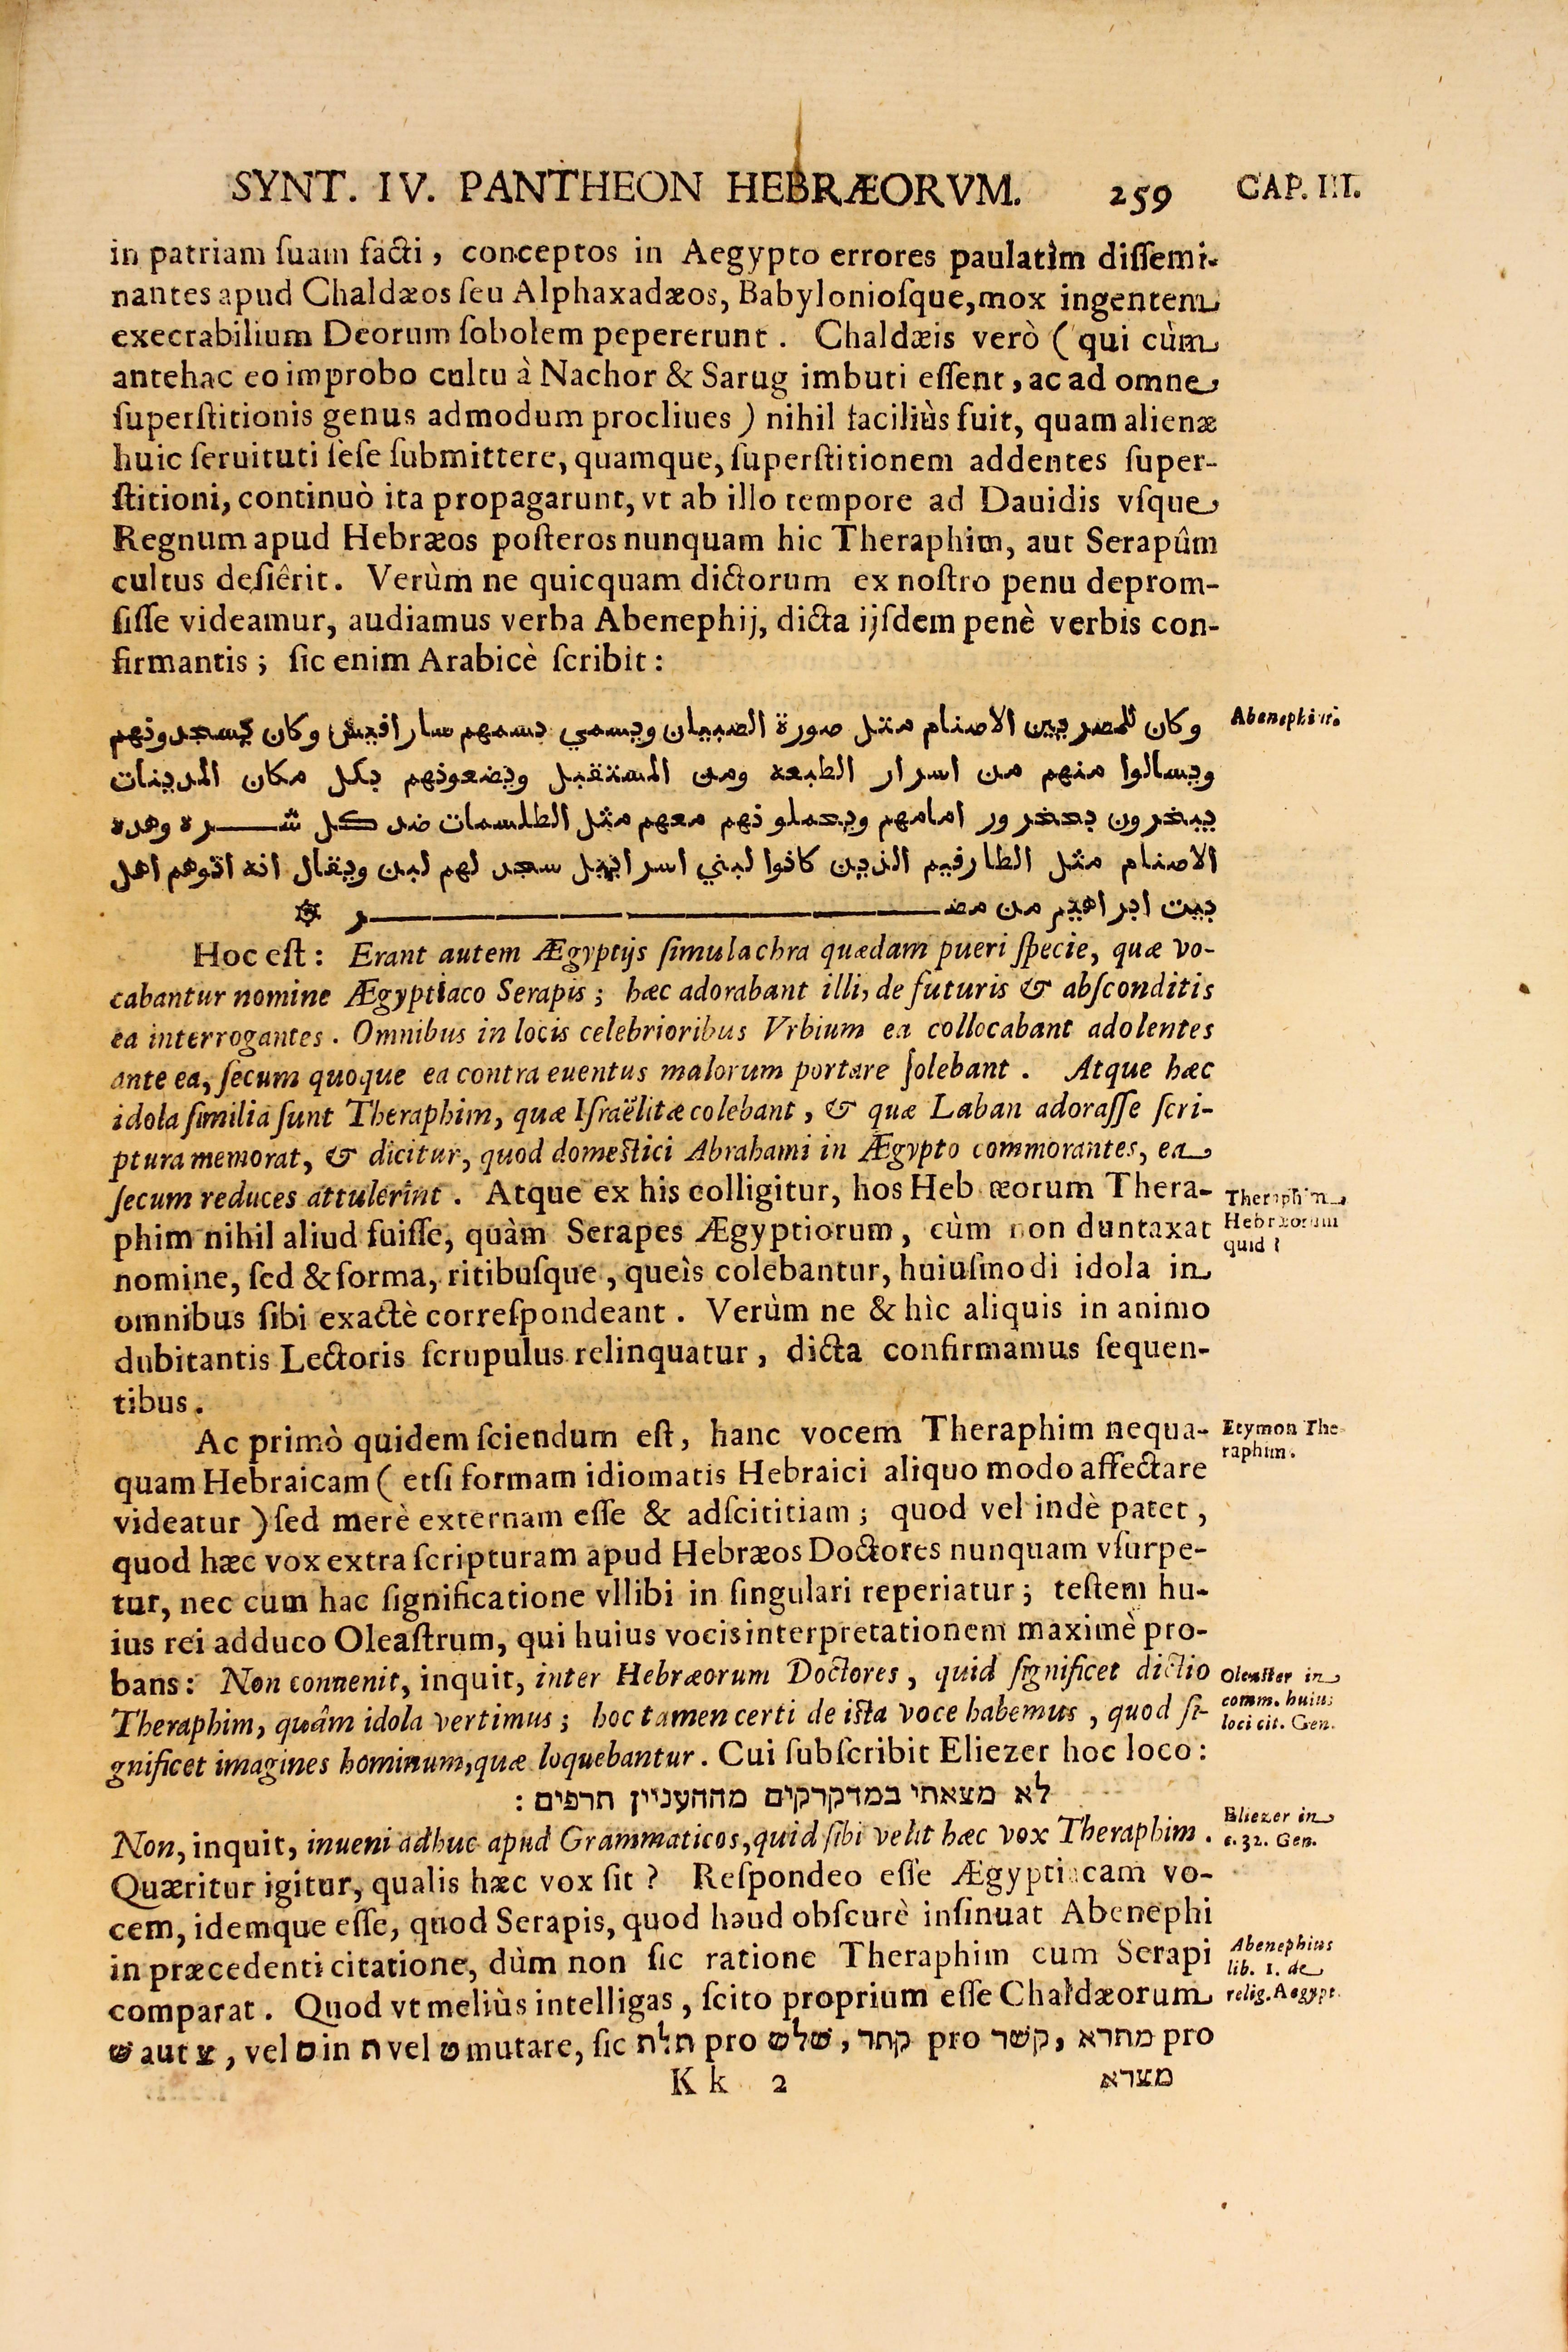 SYNT. IV. PANTHEON HEBRÆORVM. 259 CAP. III.
in patriam ſuam facti, conceptos in Aegypto errores paulatìm diſſemi-
nantes apud Chaldæos ſeu Alphaxadæos, Babylonioſque, mox ingentem
execrabilium Deorum ſobolem pepererunt. Chaldæis verò (qui cùm
antehac eo improbo cultu à Nachor & Sarug imbuti eſſent, ac ad omne
ſuperſtitionis genus admodum procliues) nihil faciliùs fuit, quam alienæ
huic ſeruituti ſeſe ſubmittere, quamque, ſuperſtitionem addentes ſuper-
ſtitioni, continuò ita propagarunt, vt ab illo tempore ad Dauidis vſque
Regnum apud Hebræos poſteros nunquam hic Theraphim, aut Serapûm
cultus deſiêrit. Verùm ne quicquam dictorum ex noſtro penu deprom-
ſiſſe videamur, audiamus verba Abenephij, dicta ijſdem penè verbis con-
firmantis; ſic enim Arabicè ſcribit:
وكان للمصريين الاصنام متل صورة الصبيان ويسمي بسمهم سارافيش وكان يسجدونهم
Abenephius.
ويسالوا منهم من اسرار الطبعه ومن المستقبل ويضعونهم بكل مكان المدينات
يبخرون بخخرور امامهم ويحملونهم معهم مثل الطلسمات ضد كل شـــره وهده
الاصنام مثل الطارفيم الذين كانوا لبني اسراييل سجد لهم لبن ويقال انه اتوهم اهل
بيت ابراهيم من مصـــر
Hoc eſt: Erant autem Ægyptijs ſimulachra quædam pueri ſpecie, quæ vo-
cabantur nomine Ægyptiaco Serapis; hæc adorabant illi, de futuris & abſconditis
ea interrogantes. Omnibus in locis celebrioribus Vrbium ea collocabant adolentes
ante ea, ſecum quoque ea contra euentus malorum portare ſolebant. Atque hæc
idola ſimilia ſunt Theraphim, quæ Iſraëlitæ colebant, & quæ Laban adoraſſe ſcri-
ptura memorat, & dicitur, quod domeſtici Abrahami in Ægypto commorantes, ea
ſecum reduces attulerint. Atque ex his colligitur, hos Hebræorum Thera-
Theraphim
Hebræorum
quid?
phim nihil aliud fuiſſe, quàm Serapes Ægyptiorum, cùm non duntaxat
nomine, ſed & forma, ritibuſque, queìs colebantur, huiuſmodi idola in
omnibus ſibi exactè correſpondeant. Verùm ne & hìc aliquis in animo
dubitantis Lectoris ſcrupulus relinquatur, dicta confirmamus ſequen-
tibus.
Ac primò quidem ſciendum eſt, hanc vocem Theraphim nequa-
Etymon The
raphim.
quam Hebraicam (etſi formam idiomatis Hebraici aliquo modo affectare
videatur) ſed merè externam eſſe & adſcititiam; quod vel indè patet,
quod hæc vox extra ſcripturam apud Hebræos Doctores nunquam vſurpe-
tur, nec cum hac ſignificatione vllibi in ſingulari reperiatur; teſtem hu-
ius rei adduco Oleaſtrum, qui huius vocis interpretationem maximè pro-
bans: Non conuenit, inquit, inter Hebræorum Doctores, quid ſignificet dictio
Oleaſter in
comm. huius
loci cit. Gen.
Theraphim, quâm idola vertimus; hoc tamen certi de iſta voce habemus, quod ſi-
gnificet imagines hominum, quæ loquebantur. Cui ſubſcribit Eliezer hoc loco:
לא מצאתי במדקרקים מההעניין תרפים :
Eliezer in
c. 32. Gen.
Non, inquit, inueni adhuc apud Grammaticos, quid ſibi velit hæc vox Theraphim.
Quæritur igitur, qualis hæc vox ſit? Reſpondeo eſſe Ægyptiacam vo-
cem, idemque eſſe, quod Serapis, quod haud obſcurè inſinuat Abenephi
in præcedenti citatione, dùm non ſic ratione Theraphim cum Serapi
Abenephius
lib. 1. de
relig. Aegypt.
comparat. Quod vt meliùs intelligas, ſcito proprium eſſe Chaldæorum
ש aut צ, vel ס in ת vel ט mutare, ſic תלת pro שלש, קתר pro קשר, מתרא pro
Kk 2 מצרא